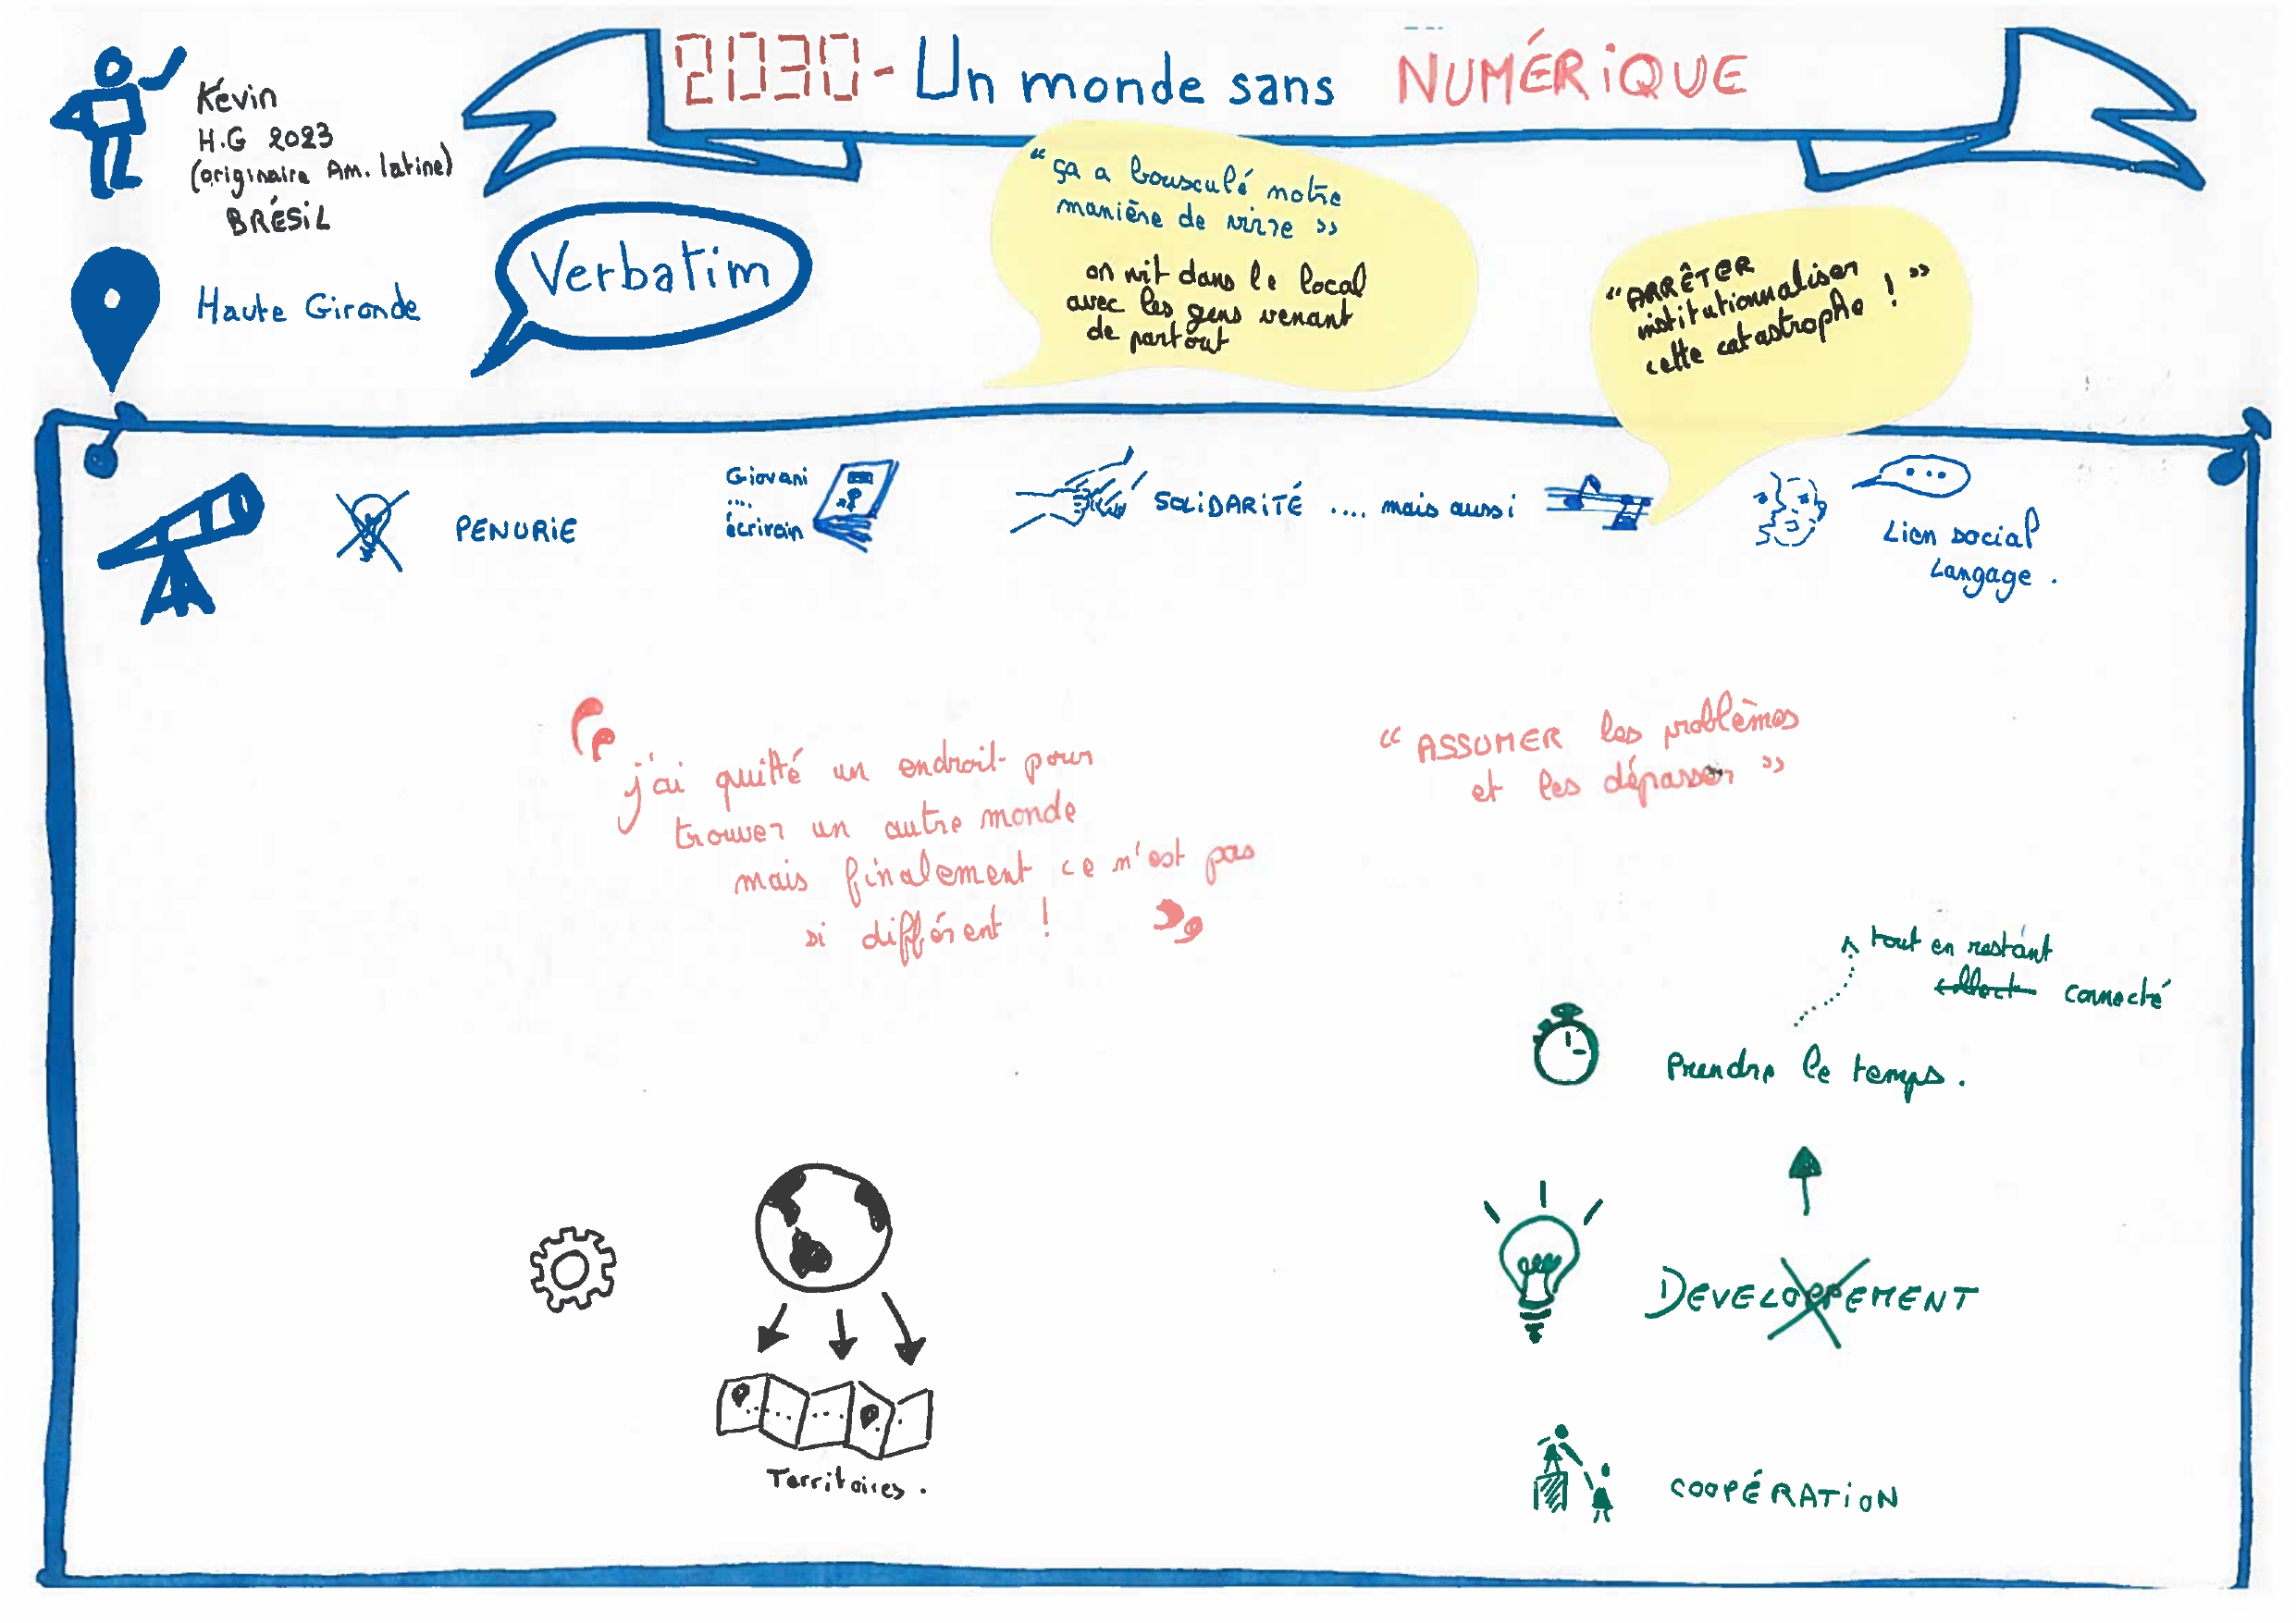 2030 - Un monde sans NUMÉRiQUE
Kévin
H.G 2023
(originaire Am. latine)
BRÉSiL
Haute Gironde
Verbatim
"ça a bousculé notre
manière de vivre"
on vit dans le local
avec les gens venant
de partout
"ARRÊTER
institutionnaliser
cette catastrophe ! "
PENURiE
Giovani
....
écrivain
SOLiDARiTÉ .... mais aussi
...
Lien social
Langage .
"j'ai quitté un endroit pour
trouver un autre monde
mais finalement ce n'est pas
si différent ! "
"ASSUMER les problèmes
et les dépasser"
tout en restant
collect connecté
Prendre le temps .
DEVELOPPEMENT
COOPÉRATiON
Territoires .